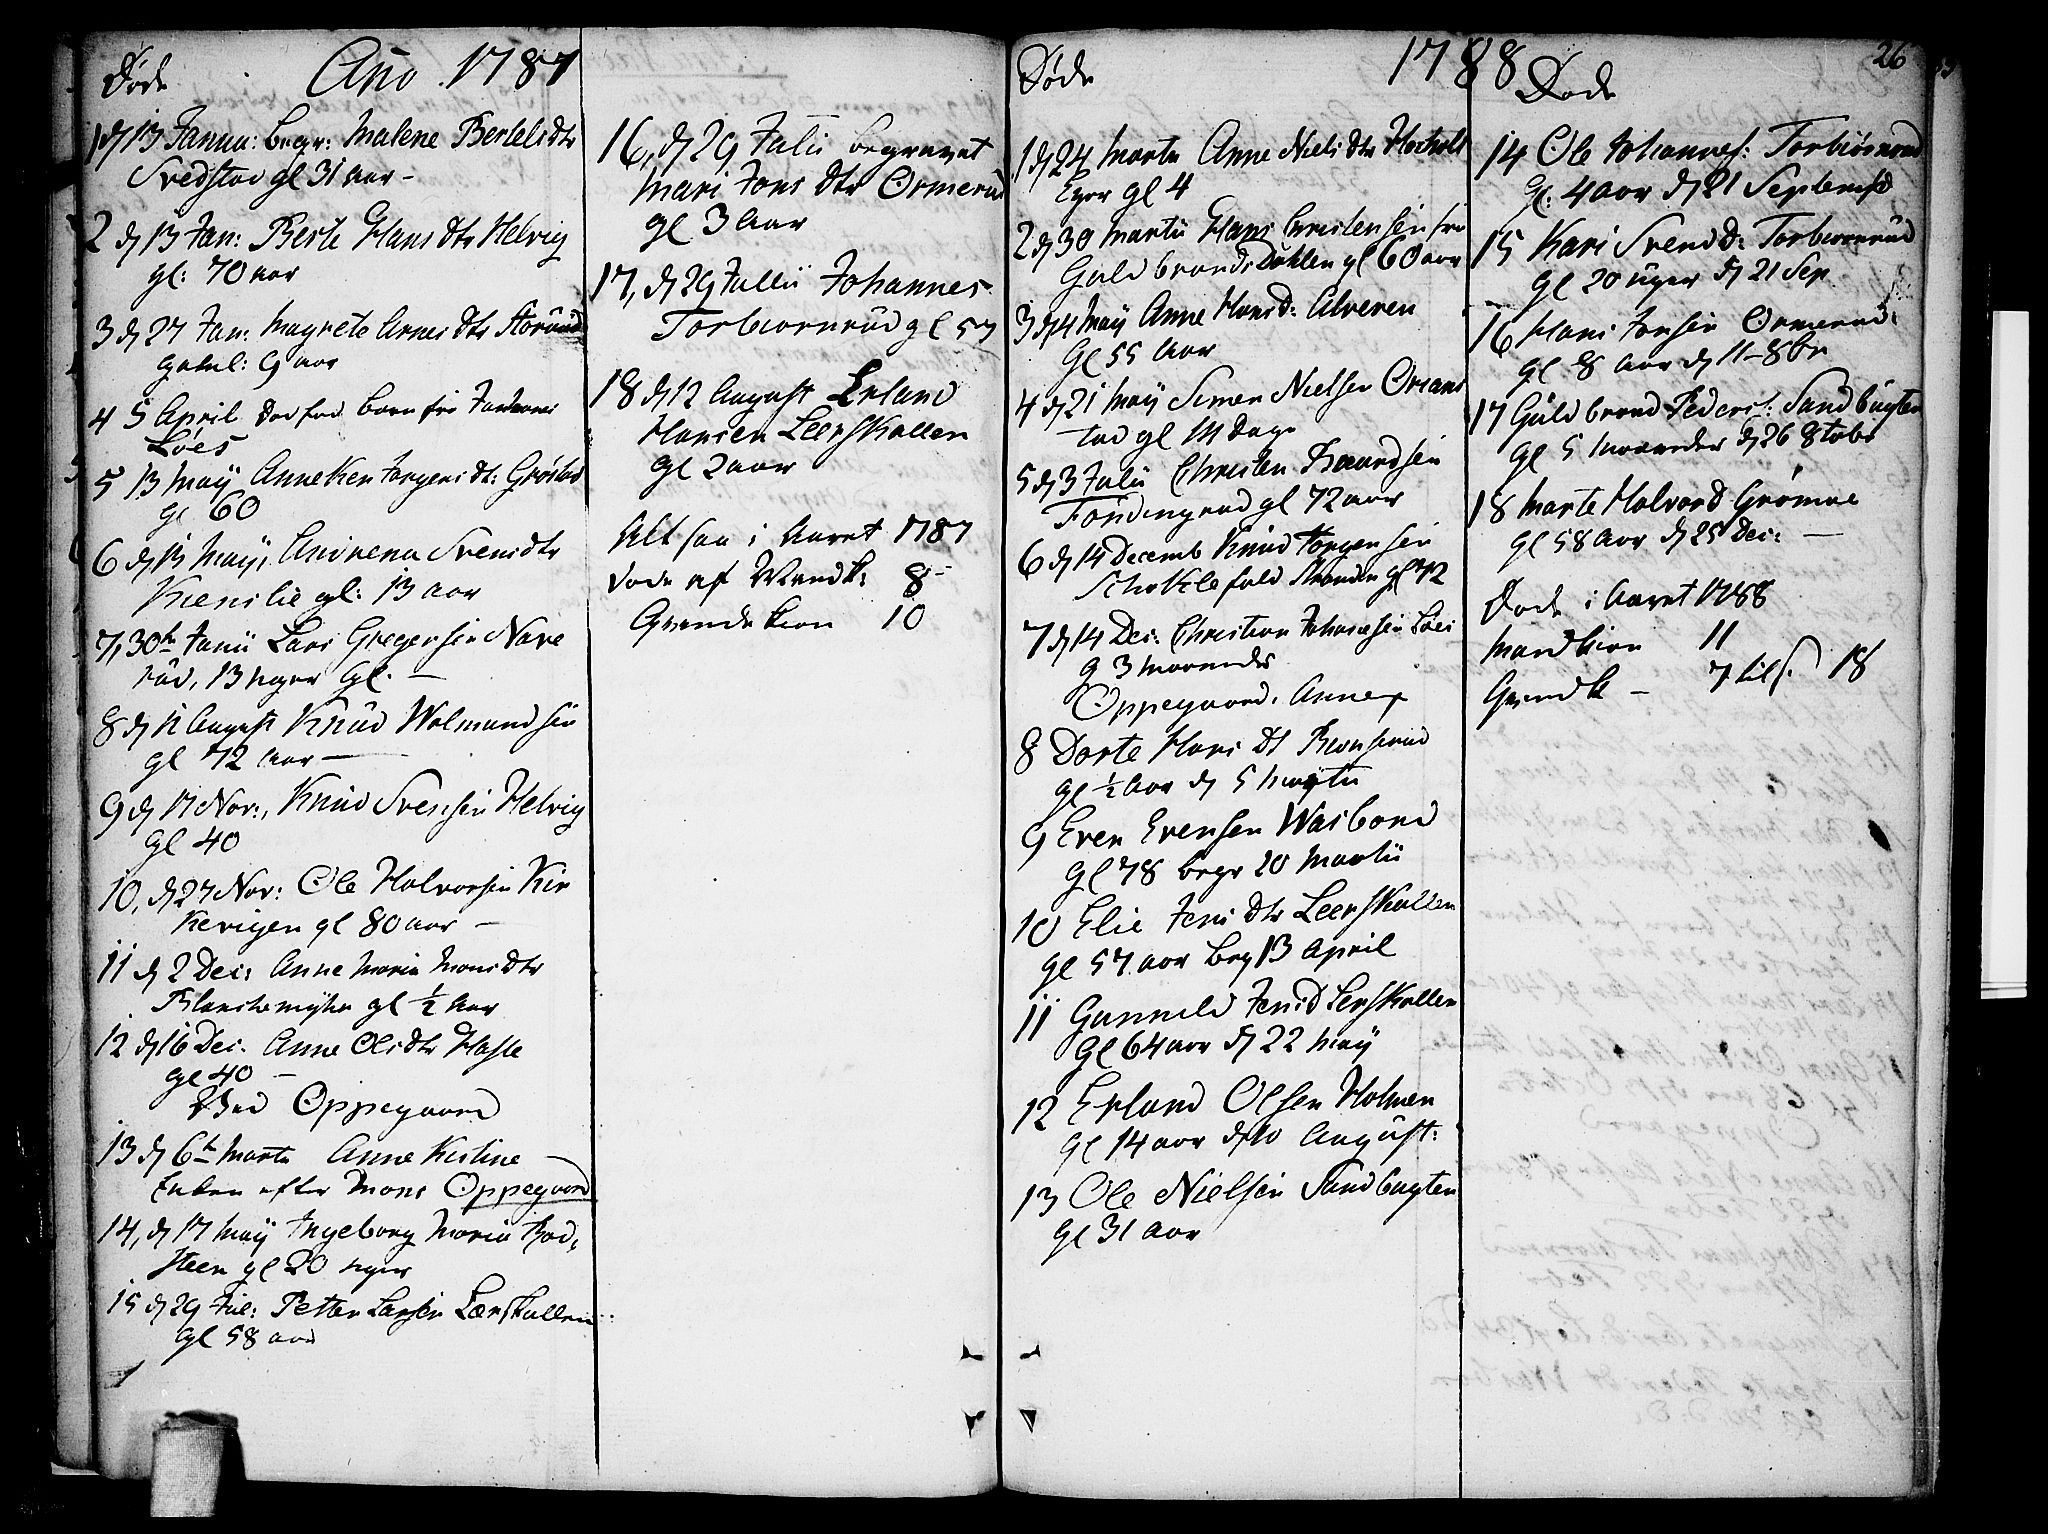 Døde Ano 1787
1 d 13 Janua: begr: Malene Bertels dtr
Sredstad gl 31 aar –
2 d 13 Jan: Berte Hans dtr Helvig
gl: 70 aar
3 d 27 Jan: Magrete Arnes dtr
gaml: 9 aar
4 5 April dødfød barn fra
Løes
5 13 May Anneken Jørgens dt:
gl 60
6 d 13 May, Andrena Svens dtr
Kienslie gl: 13 aar
7, 30 Junii Lars Gregersen Nare
rud, 13 uger gl. –
8 d 12 August Knud Wolmundsen
gl 72 aar –
9 d 17 Nov:, Knud Svensen Helvig
gl 40
10, d 27 Nov: Ole Halvorsen Kir
kevigen gl 80 aar –
11 d 2 Dec: Anne Maria Mons dtr
gl ½ aar
12 d 16 Dec. Anne Ols dtr Hasle
gl 40 –
Ved Oppegaard
13 d 6 Marti Anne Kistine –
Enken efter Mons Oppegaard
14, d 17 May Ingeborg Maria Rød,
steen gl 20 uger
15 d 29 Jul: Petter Larsen Lærskallen
gl 58 aar
16, d 29 Julii begravet
Mari Jons dtr Ormerud
gl 3 aar
17, d 29 Julii Johannes
Torbiørnrud gl 57
18 d 12 August Erland
Hansen Leerskallen
gl 2 aar
Alt saa i Aaret 1787
døde af Mandk: 8 –
Qvindekiøn 10
Døde 1788 Døde 26
1 d 24 Marti Anne Niels dtr
gl 4
2 d 30 Martii Hans Christensen fra
Guldbrands Dahlen gl 60 aar
3 d 4 May Anne Hans d: Alveren
gl 55 aar
4 d 21 May Simen Nielsen
tad gl 14 dage
5 d 3 Julii Christen
gl 72 aar
6 d 14 Decemb Knud Jørgensen
gl 72
7 d 14 Dec: Christian Johanesen Løes
g 3 maaneder
Oppegaard, Annex
8 Dorte Hans dt
gl ½ aar d 5 Martii
9 Even Evensen Wasbond
gl 78 begr 20 Martii
10 Elie Jens dtr Leerskallen
gl 57 aar beg 13 April
11 Gunnild Jens d Lerskallen
gl 64 aar d 22 May
12 Erland Olsen Holmen
gl 14 aar d 10 August:
13 Ole Nielsen Sandbugten
gl 31 aar
14 Ole Johannes: Torbiørnrud
gl: 4 aar d 21 Septemb
15 Kari Svend d: Torbiørnrud
gl 20 uger d 21 Sep
16 Hans Jonsen Ormerud:
gl 8 aar d 11 – 8br
17 Guldbrand Peders: Sandbugten
gl 5 maaneder d 26 8tobr
18 Marte Halvord Grømoe
gl 58 aar d 25 Dec: –
Døde i Aaret 1788
Mandkiøn 11
Qvindk – 7 tils. 18